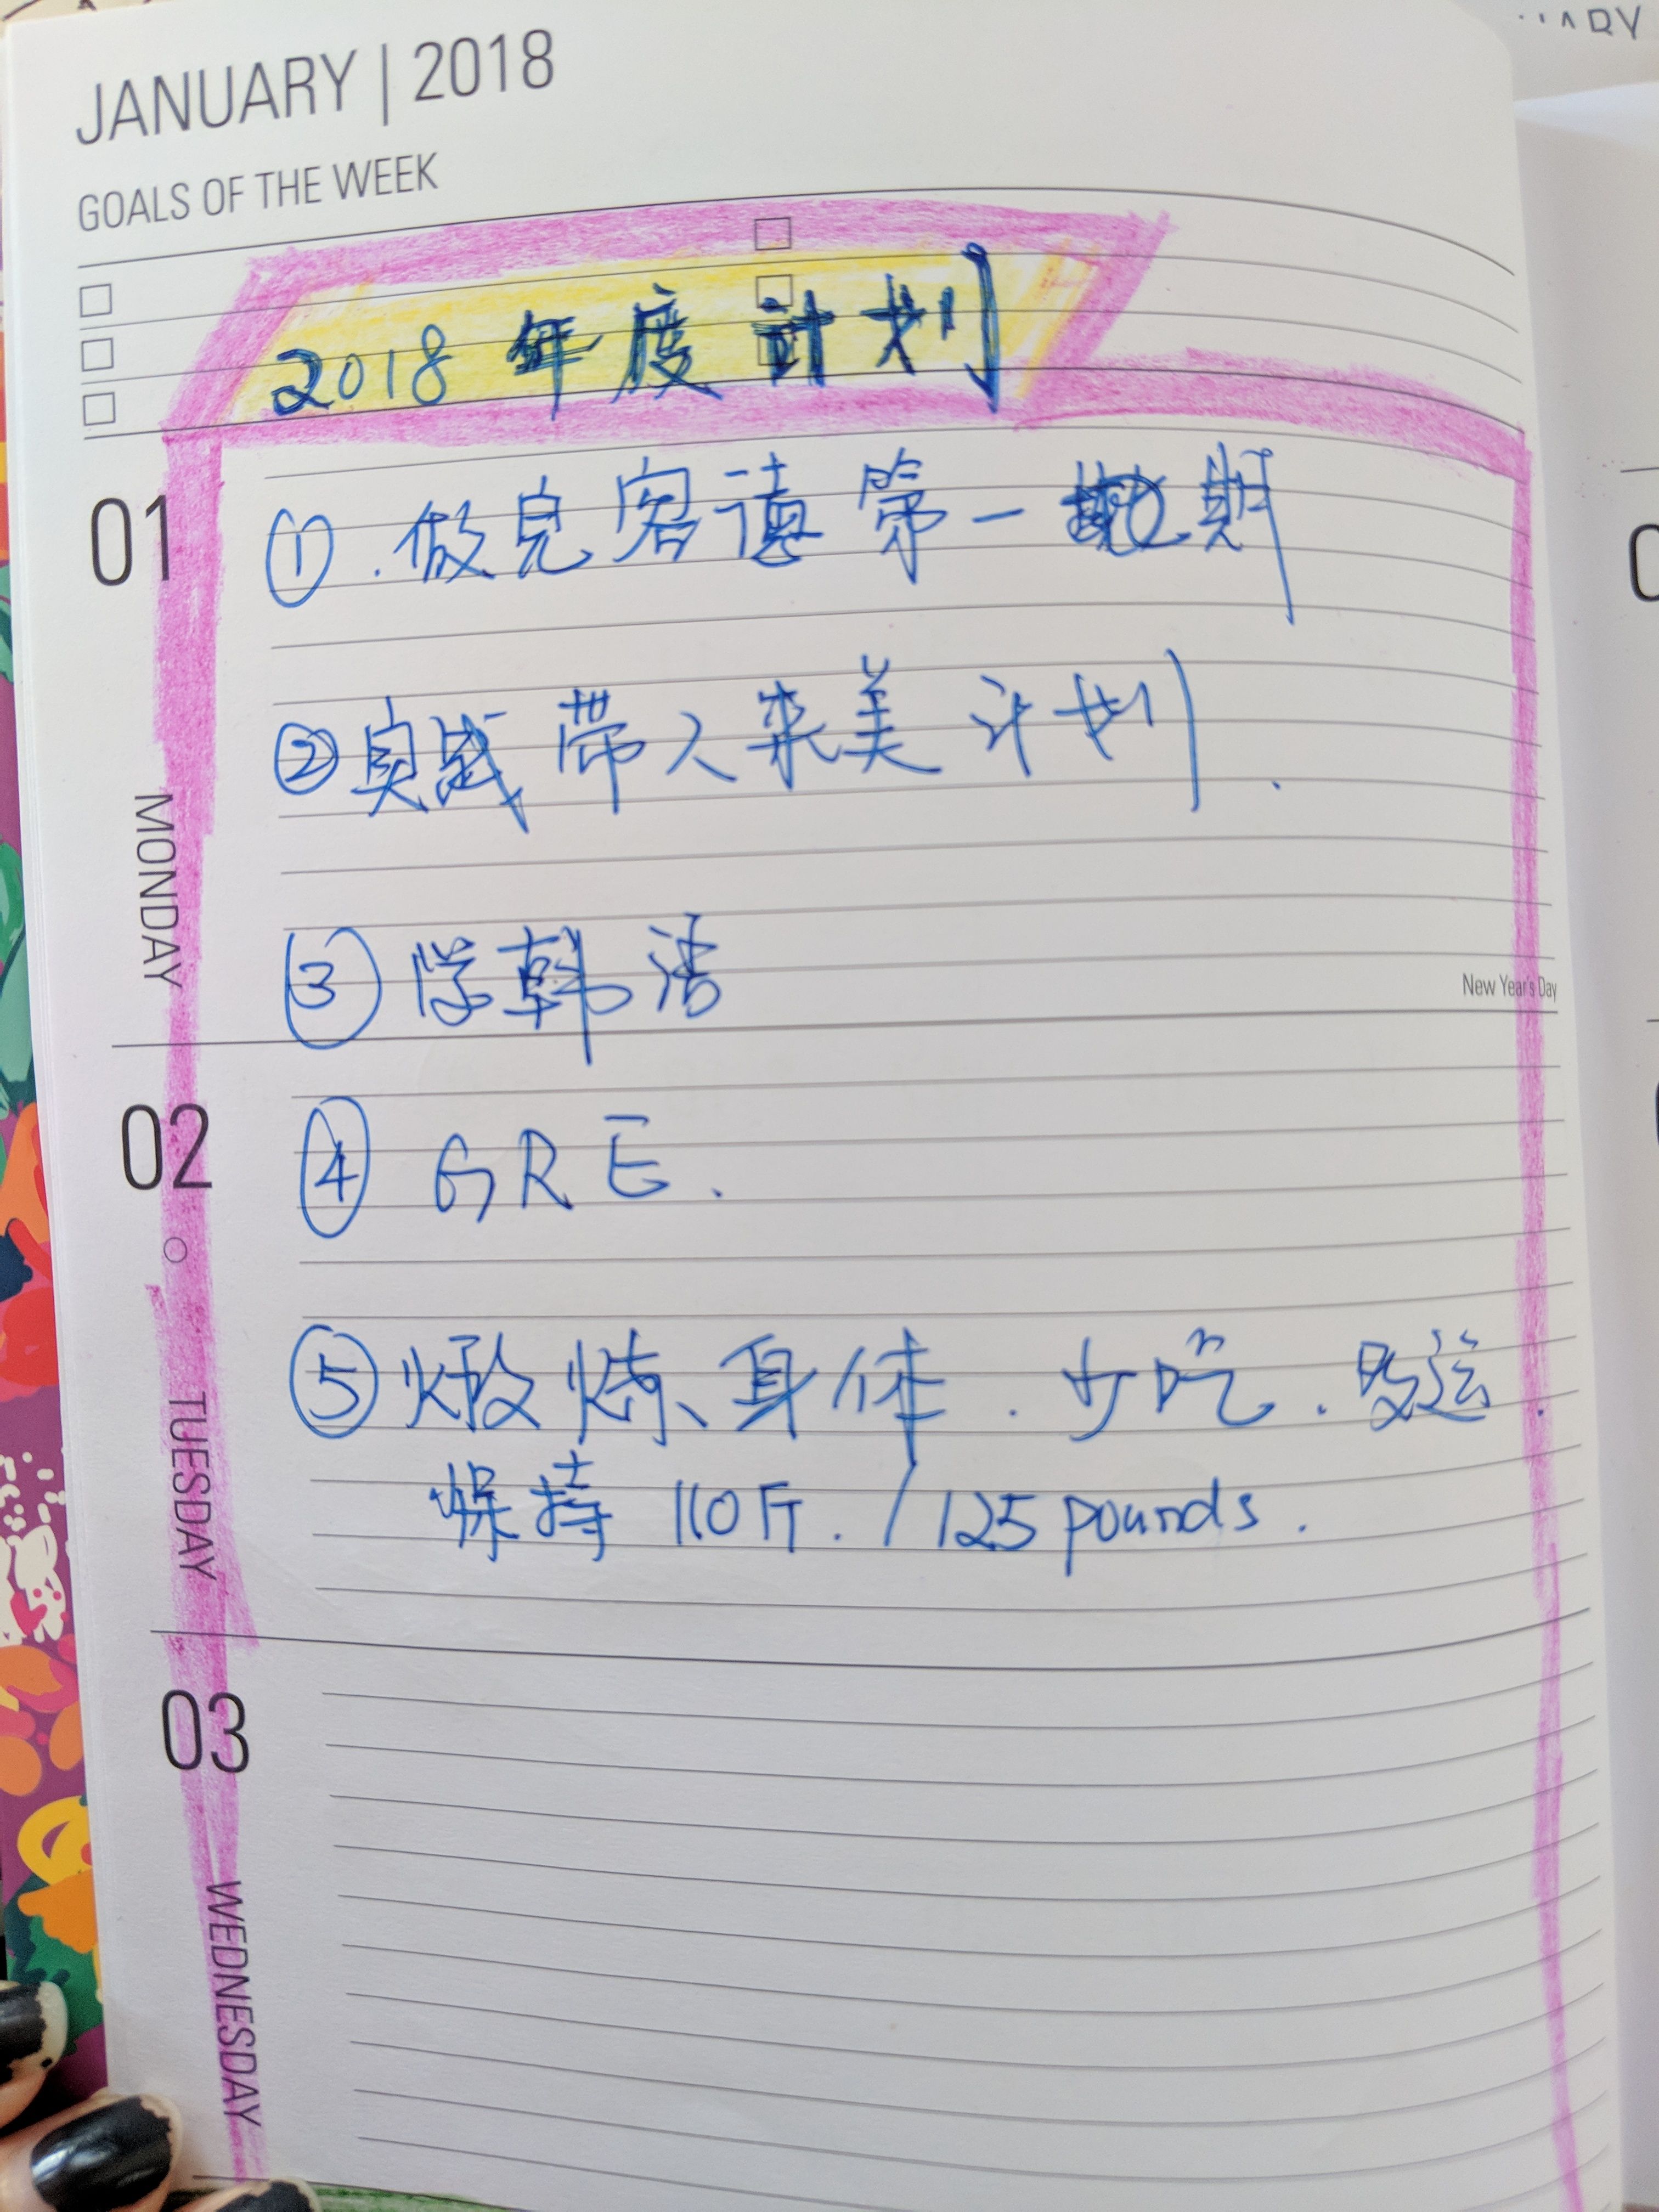 JANUARY | 2018
GOALS OF THE WEEK
2018 年度计划
01
MONDAY
① . 做完 德 第一 期
② 带人来美计划 .
③ 学韩语
New Year's Day
02
TUESDAY
④ GRE .
⑤ 锻炼身体 . 少吃 . 多运 .
保持 110斤 . / 125 pounds .
03
WEDNESDAY